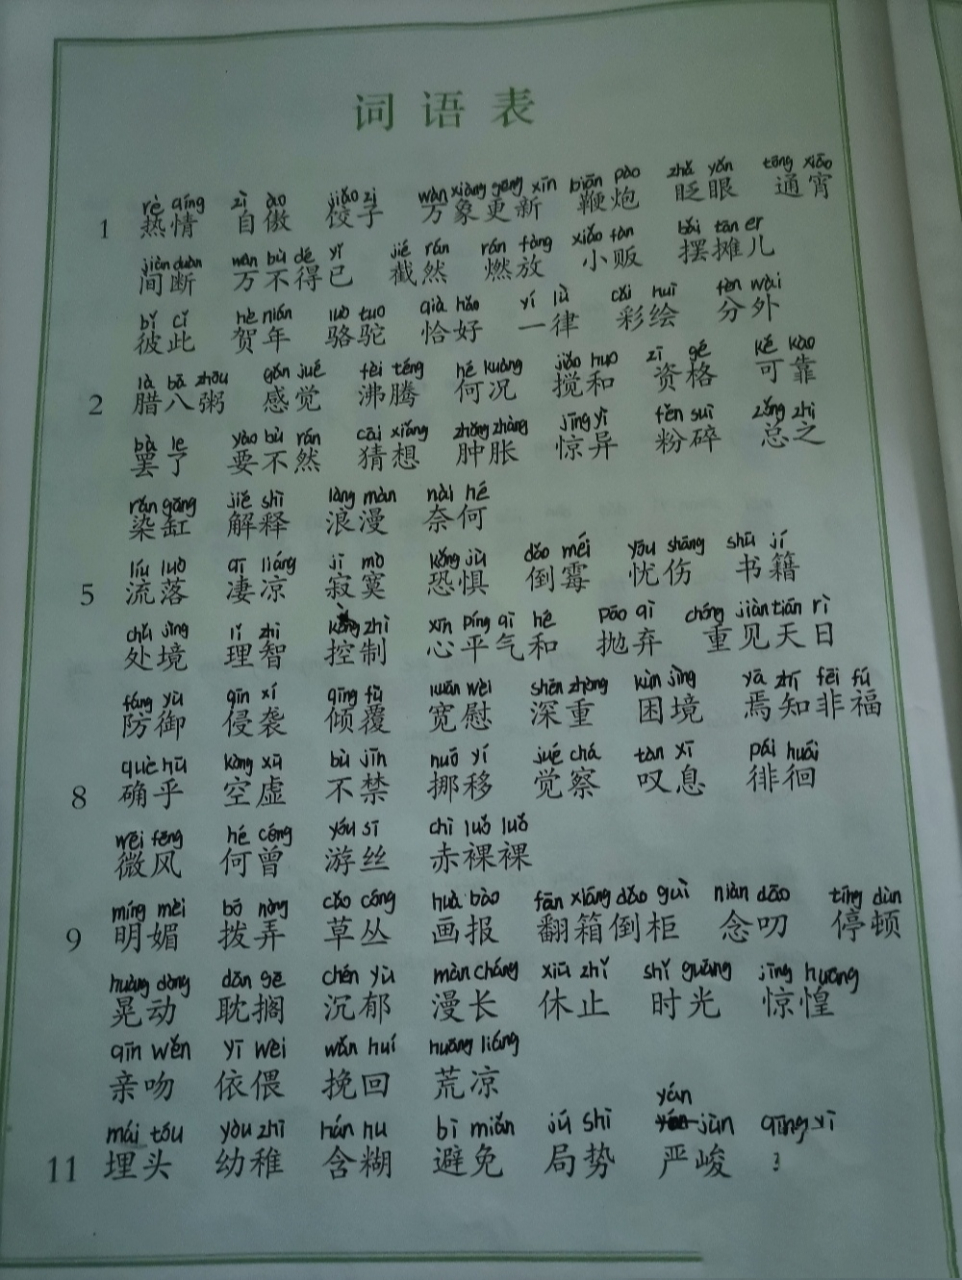 词语表
rè qíng zì ào jiǎo zi wàn xiàng gēng xīn biān pào zhǎ yǎn tōng xiāo
1 热情 自傲 饺子 万象更新 鞭炮 眨眼 通宵
jiàn duàn wàn bù dé yǐ jié rán rán fàng xiǎo fàn bǎi tān er
间断 万不得已 截然 燃放 小贩 摆摊儿
bǐ cǐ hè nián luò tuo qià hǎo yí lǜ cǎi huì fèn wài
彼此 贺年 骆驼 恰好 一律 彩绘 分外
là bā zhōu gǎn jué fèi téng hé kuàng jiǎo huo zī gé kě kào
2 腊八粥 感觉 沸腾 何况 搅和 资格 可靠
bà le yào bù rán cāi xiǎng zhǒng zhàng jīng yì fěn suì zǒng zhī
罢了 要不然 猜想 肿胀 惊异 粉碎 总之
rǎn gāng jiě shì làng màn nài hé
染缸 解释 浪漫 奈何
liú luò qī liáng jì mò kǒng jù dǎo méi yōu shāng shū jí
5 流落 凄凉 寂寞 恐惧 倒霉 忧伤 书籍
chǔ jìng lǐ zhì kòng zhì xīn píng qì hé pāo qì chóng jiàn tiān rì
处境 理智 控制 心平气和 抛弃 重见天日
fáng yù qīn xí qīng fù kuān wèi shēn zhòng kùn jìng yān zhī fēi fú
防御 侵袭 倾覆 宽慰 深重 困境 焉知非福
què hū kòng xū bù jīn nuó yí jué chá tàn xī pái huái
8 确乎 空虚 不禁 挪移 觉察 叹息 徘徊
wēi fēng hé céng yóu sī chì luǒ luǒ
微风 何曾 游丝 赤裸裸
míng mèi bō nòng cǎo cóng huà bào fān xiāng dǎo guì niàn dāo tíng dùn
9 明媚 拨弄 草丛 画报 翻箱倒柜 念叨 停顿
huàng dòng dān gē chén yù màn cháng xiū zhǐ shí guāng jīng huáng
晃动 耽搁 沉郁 漫长 休止 时光 惊惶
qīn wěn yī wēi wǎn huí huāng liáng
亲吻 依偎 挽回 荒凉
yán
mái tóu yòu zhì hán hu bì miǎn jú shì jùn qīng yì
11 埋头 幼稚 含糊 避免 局势 严峻